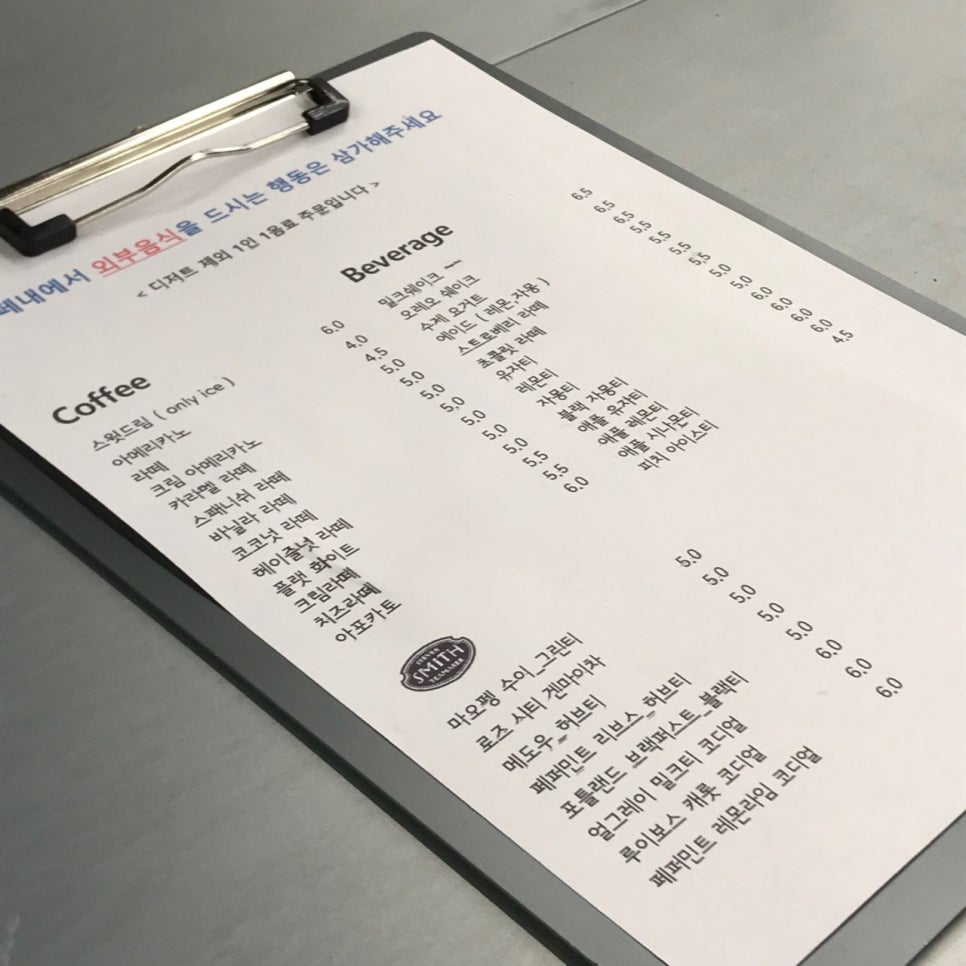 페내에서 외부음식을 드시는 행동은 삼가해주세요
< 디저트 제외 1인 1음료 주문입니다 >
Coffee
스윗드림 ( only ice ) 6.0
아메리카노 4.0
라떼 4.5
크림 아메리카노 5.0
카라멜 라떼 5.0
스패니쉬 라떼 5.0
바닐라 라떼 5.0
코코넛 라떼 5.0
헤이즐넛 라떼 5.0
플랫 화이트 5.0
크림라떼 5.5
치즈라떼 5.5
아포카토 6.0
Beverage
밀크쉐이크 6.5
오레오 쉐이크 6.5
수제 요거트 6.5
에이드 ( 레몬,자몽 ) 5.5
스트로베리 라떼 5.5
초콜릿 라떼 5.5
유자티 5.5
레몬티 5.0
자몽티 5.0
블랙 자몽티 6.0
애플 유자티 6.0
애플 레몬티 6.0
애플 시나몬티 6.0
피치 아이스티 4.5
STEVEN
SMITH
TEAMAKER
마오펭 수이_그린티 5.0
로즈 시티 겐마이차 5.0
메도우_허브티 5.0
페퍼민트 리브스_허브티 5.0
포틀랜드 브랙퍼스트_블랙티 5.0
얼그레이 밀크티 코디얼 6.0
루이보스 캐롯 코디얼 6.0
페퍼민트 레몬라임 코디얼 6.0